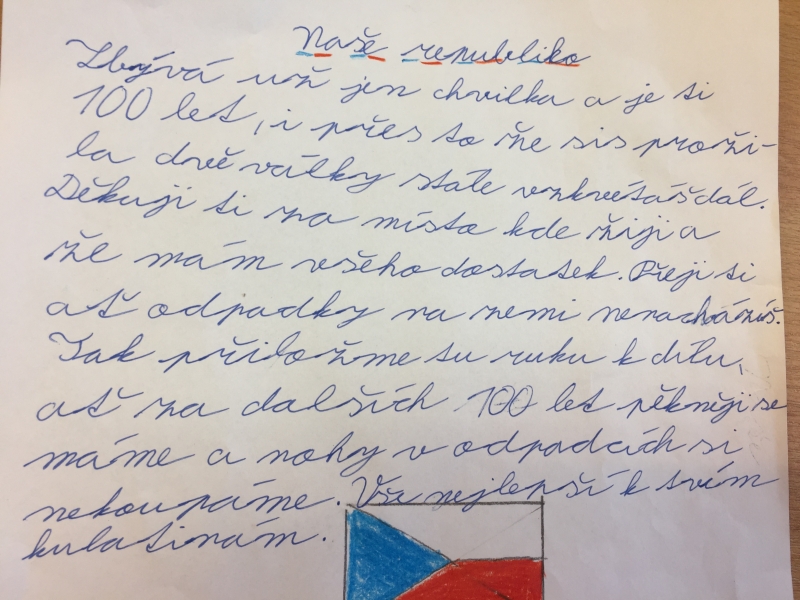 Naše republiko
Zbývá už jen chvilka a je ti
100 let, i přes to že sis proži-
la dvě války stále vzkvétáš dál.
Děkuji ti za místo kde žiji a
že mám všeho dostatek. Přeji ti
ať odpadky na zemi nenacházíš.
Tak přiložme tu ruku k dílu,
ať za dalších 100 let pěkněji se
máme a nohy v odpadcích si
nekoupáme. Vše nejlepší k tvím
kulatinám.